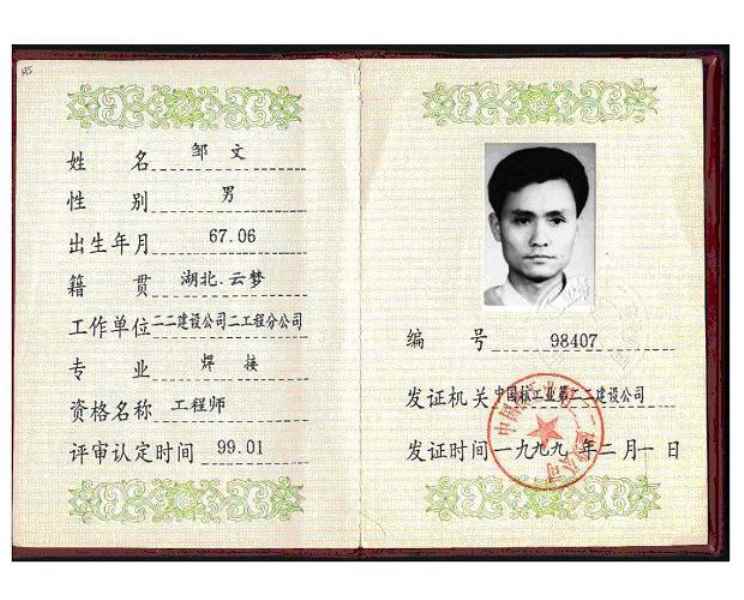 姓名 邹文
性别 男
出生年月 67.06
籍贯 湖北.云梦
工作单位 二二建设公司二工程分公司
专业 焊接
资格名称 工程师
评审认定时间 99.01
编号 98407
发证机关 中国核工业第二二建设公司
发证时间 一九九九年二月一日